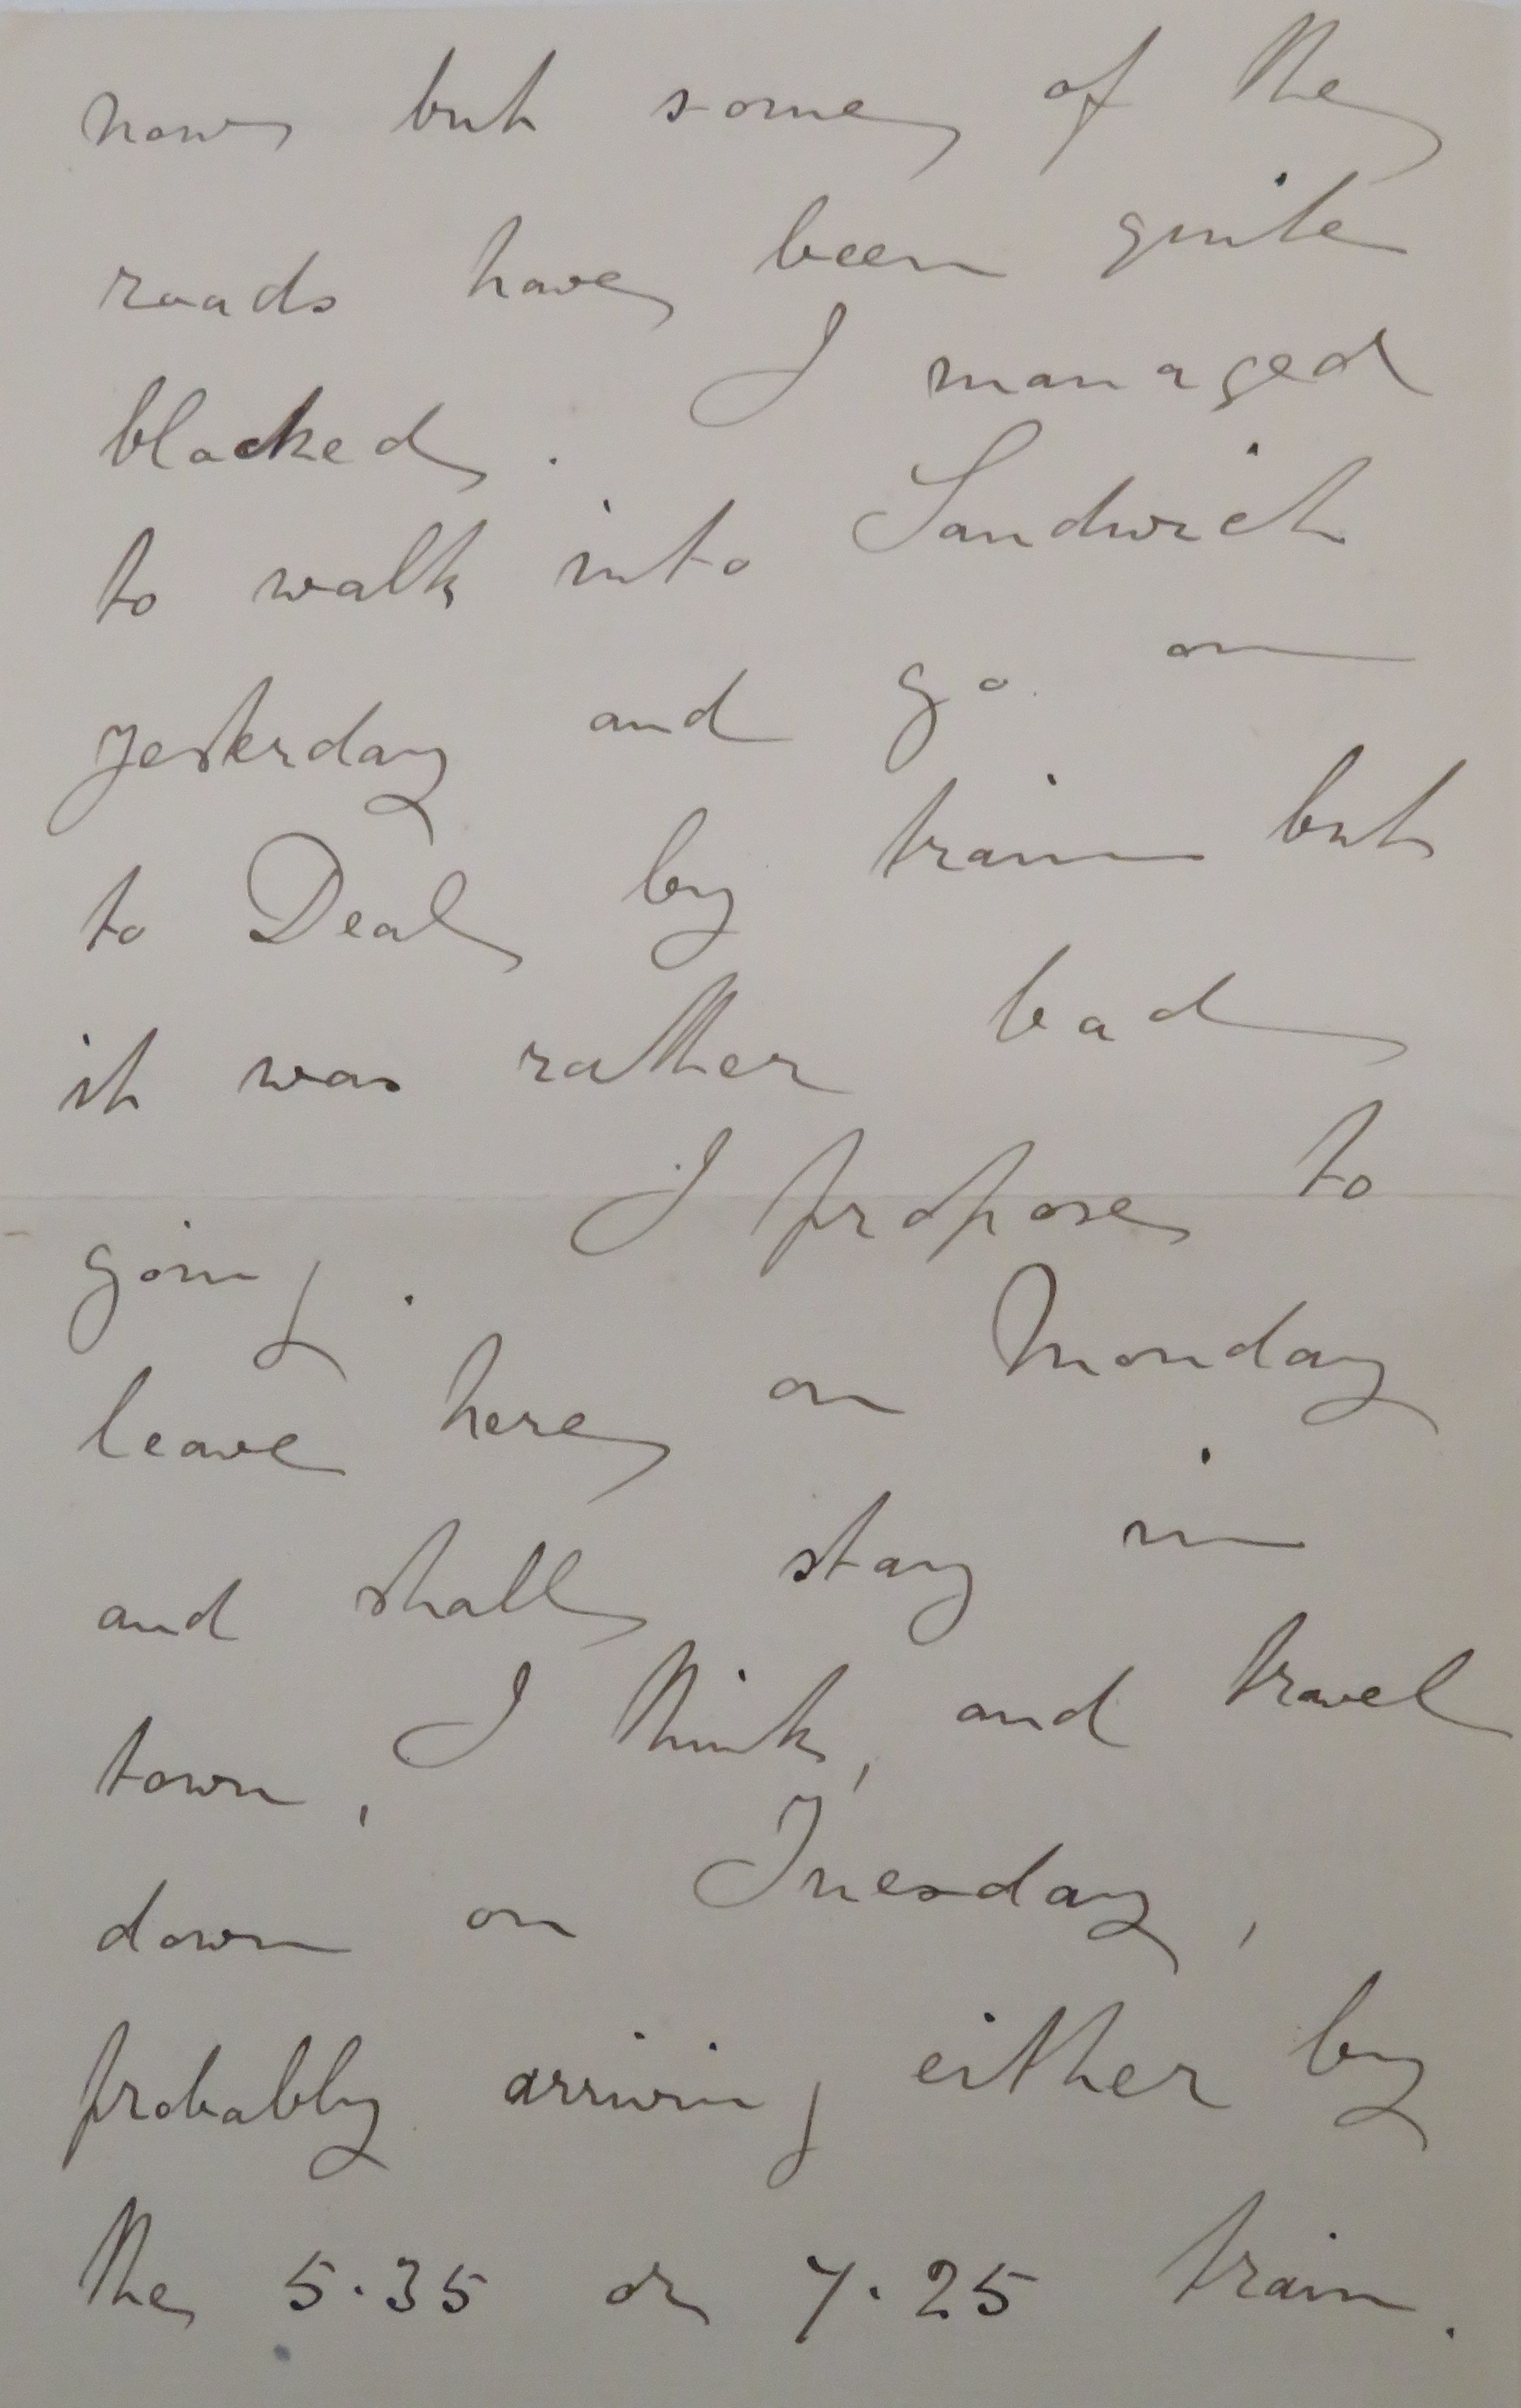 now but some of the
roads have been quite
blocked. I managed
to walk into Sandwich
yesterday and go on
to Deal by train but
it was rather bad
going. I propose to
leave here on Monday
and shall stay in
town, I think, and travel
down on Tuesday,
probably arriving either by
the 5.35 or 7.25 train.